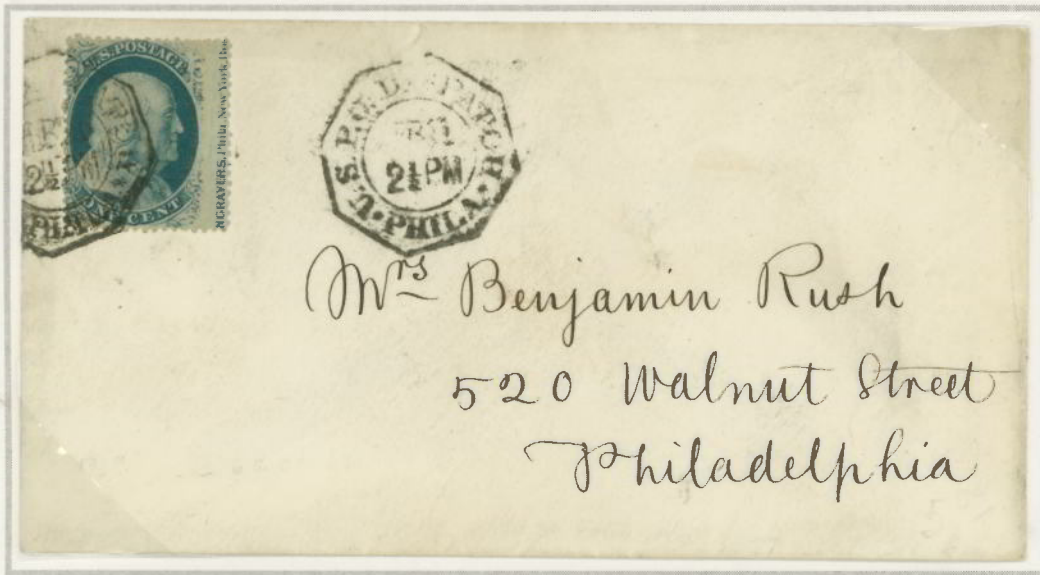 U.S. POSTAGE
ONE CENT
NGRAVERS. Phila. New York. Bo
U.S.P.O. DISPATCH
2½ PM
PHILA.
2½
PHILA
Mrs Benjamin Rush
520 Walnut Street
Philadelphia